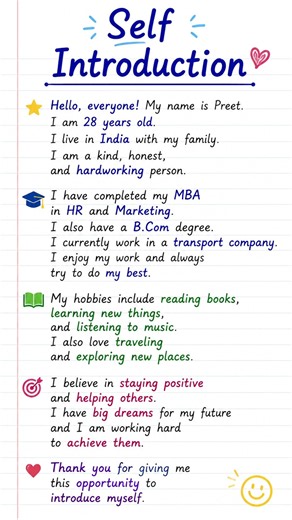 Self
Introduction
Hello, everyone! My name is Preet.
I am 28 years old.
I live in India with my family.
I am a kind, honest,
and hardworking person.
I have completed my MBA
in HR and Marketing.
I also have a B.Com degree.
I currently work in a transport company.
I enjoy my work and always
try to do my best.
My hobbies include reading books,
learning new things,
and listening to music.
I also love traveling
and exploring new places.
I believe in staying positive
and helping others.
I have big dreams for my future
and I am working hard
to achieve them.
Thank you for giving me
this opportunity to
introduce myself.